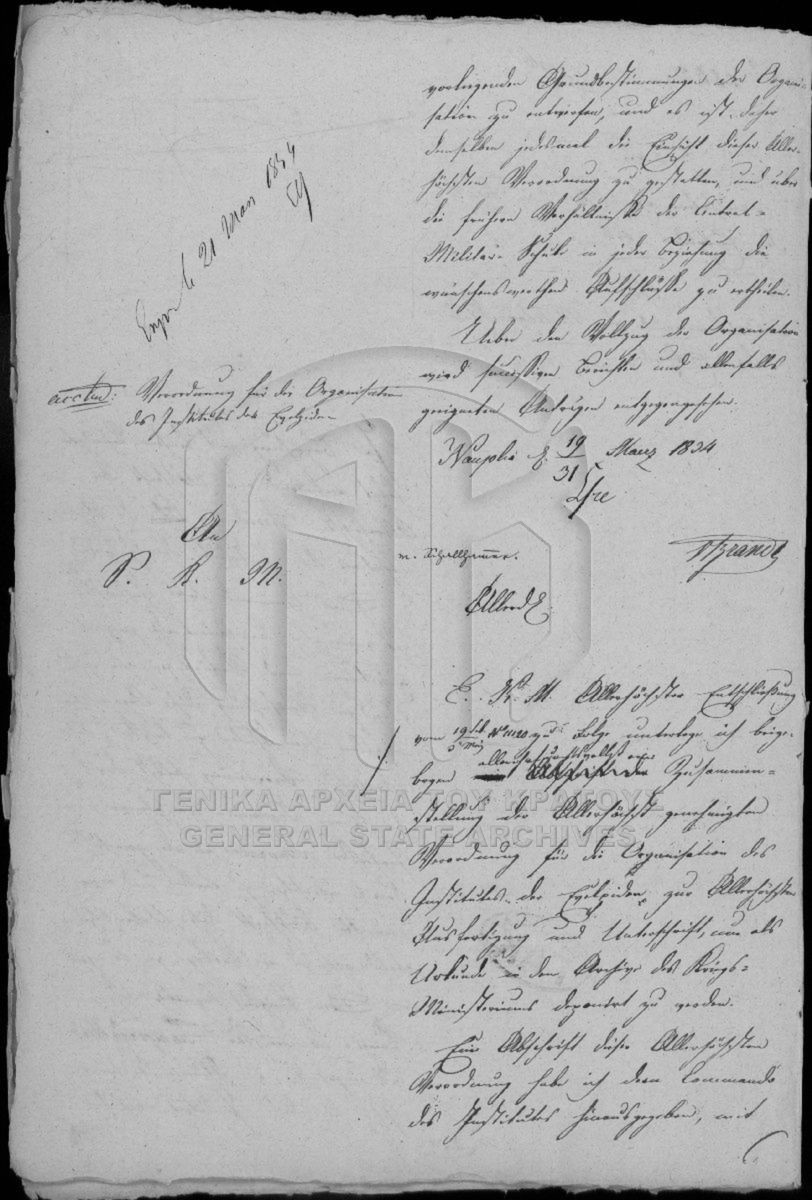 vorliegenden Grundbestimmungen der Organi-
sation zu entwerfen, und es ist daher
demselben jedesmal die Einsicht dieser Aller-
höchsten Verordnung zu gestatten, und über
die frühern Verhältniße der Central-
Militär-Schule in jeder Beziehung die
wünschenswerthen Aufschlüße zu ertheilen.
Ueber den Vollzug der Organisation
wird Berichten und allenfalls
geeigneten Anträgen entgegengesehen.
Nauplia d. 19/31 März 1834
le 21 Mars 1834
Verordnung für die Organisation
des Institutes der Evelpiden
An
S. K. M.
v. Schallhammer.
Brandt
Allerd
E. K. M. Allerhöchster Entschließung
vom zu Folge unterlege ich beige-
bogen Zusammen-
stellung der Allerhöchst genehmigten
Verordnung für die Organisation des
Institutes der Evelpiden zur Allerhöchsten
Ausfertigung und Unterschrift, um als
Urkunde in dem Archive des Kriegs-
Ministeriums deponirt zu werden.
Eine Abschrift dieser Allerhöchsten
Verordnung habe ich dem Commando
des Institutes hinausgegeben, mit
ΓΕΝΙΚΑ ΑΡΧΕΙΑ ΤΟΥ ΚΡΑΤΟΥΣ
GENERAL STATE ARCHIVES